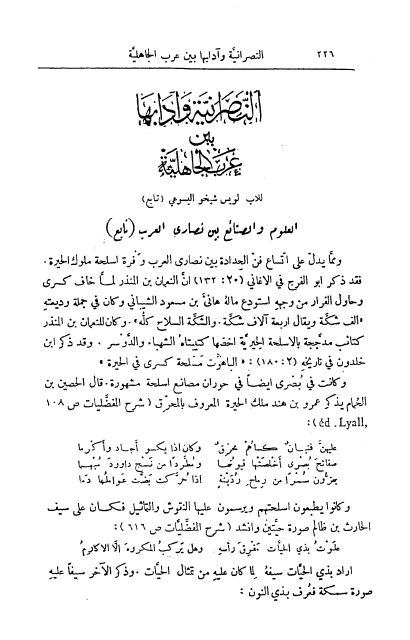 ٢٢٦ النصرانيَّة وآدابها بين عرب الجاهليَّة
النصرانية وآدابها
بين
عرب الجاهلية
للاب لويس شيخو اليسوعي (تابع)
العلوم والصنائع بين نصارى العرب (تابع)
وممَّا يدلّ على اتّساع فنّ الحِدادة بين نصارى العرب وفرة اسلحة ملوك الحيرة.
فقد ذكر ابو الفرج في الاغاني (٢٠: ١٣٢) انَّ النعمان بن المنذر لمَّا خاف كسرى
وحاول الفرار من وجههِ استودع مالهُ هانئ بن مسعود الشيباني وكان في جملة وديعتهِ
«الف شكَّة ويقال اربعة آلاف شكَّة. والشكَّة السلاح كلّهُ». وكان للنعمان بن المنذر
كتائب مدجَّجة بالاسلحة الحيريَّة اخصّها كتيبتاهُ الشهباء والدَّوسر. وقد ذكر ابن
خلدون في تاريخهِ (٢: ١٨٠): «الباهوت مَسلحة كسرى في الحيرة»
وكانت في بُصْرى ايضاً في حوران مصانع اسلحة مشهورة. قال الحصين بن
الحُمام يذكر عمرو بن هند ملك الحيرة المعروف بالمحرّق (شرح المفضَّليات ص ١٠٨
éd. Lyall,):
عليهنَّ فتيانٌ كساهُم محرّقٌ وكان اذا يكسو أجاد وأكرما
صفائحَ بُصْرى أخلصَتْها قيونُها ومطَّرِداً من نَسج داوودَ مُبْهَما
يهزّون سُمْراً من رماح رُدَينةٍ اذا حُرّكت بَضَّت عواملُها دما
وكانوا يطبعون اسلحتهم ويرسمون عليها النقوش والتاثيل فكان على سيف
الحارث بن ظالم صورة حيَّتين وانشد (شرح المفضَّليات ص ٦١٦):
علوتُ بذي الحيَّات مَفرِقَ رأسهِ وهل يركبُ المكروهَ الَّا الاكارمُ
اراد بذي الحيَّات سيفهُ لِما كان عليهِ من تمثال الحيَّات. وذكر الآخر سيفاً عليهِ
صورة سمكة فعُرف بذي النون: